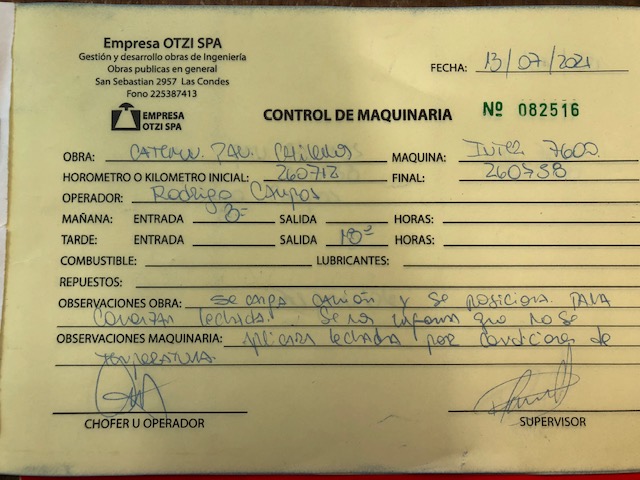 Empresa OTZI SPA
Gestión y desarrollo obras de Ingeniería
Obras publicas en general
San Sebastian 2957 Las Condes
Fono 225387413
EMPRESA
OTZI SPA
CONTROL DE MAQUINARIA
FECHA: 13/07/2021
Nº 082516
OBRA: MAQUINA: 7600.
HOROMETRO O KILOMETRO INICIAL: 260712 FINAL: 260738
OPERADOR: Rodrigo Campos
MAÑANA: ENTRADA 8 SALIDA HORAS:
TARDE: ENTRADA SALIDA 18 HORAS:
COMBUSTIBLE: LUBRICANTES:
REPUESTOS:
OBSERVACIONES OBRA: Se carga camión y se posiciona para
lechada. Se nos informa que no se
OBSERVACIONES MAQUINARIA: aplicara lechada por condiciones de
temperatura.
CHOFER U OPERADOR SUPERVISOR